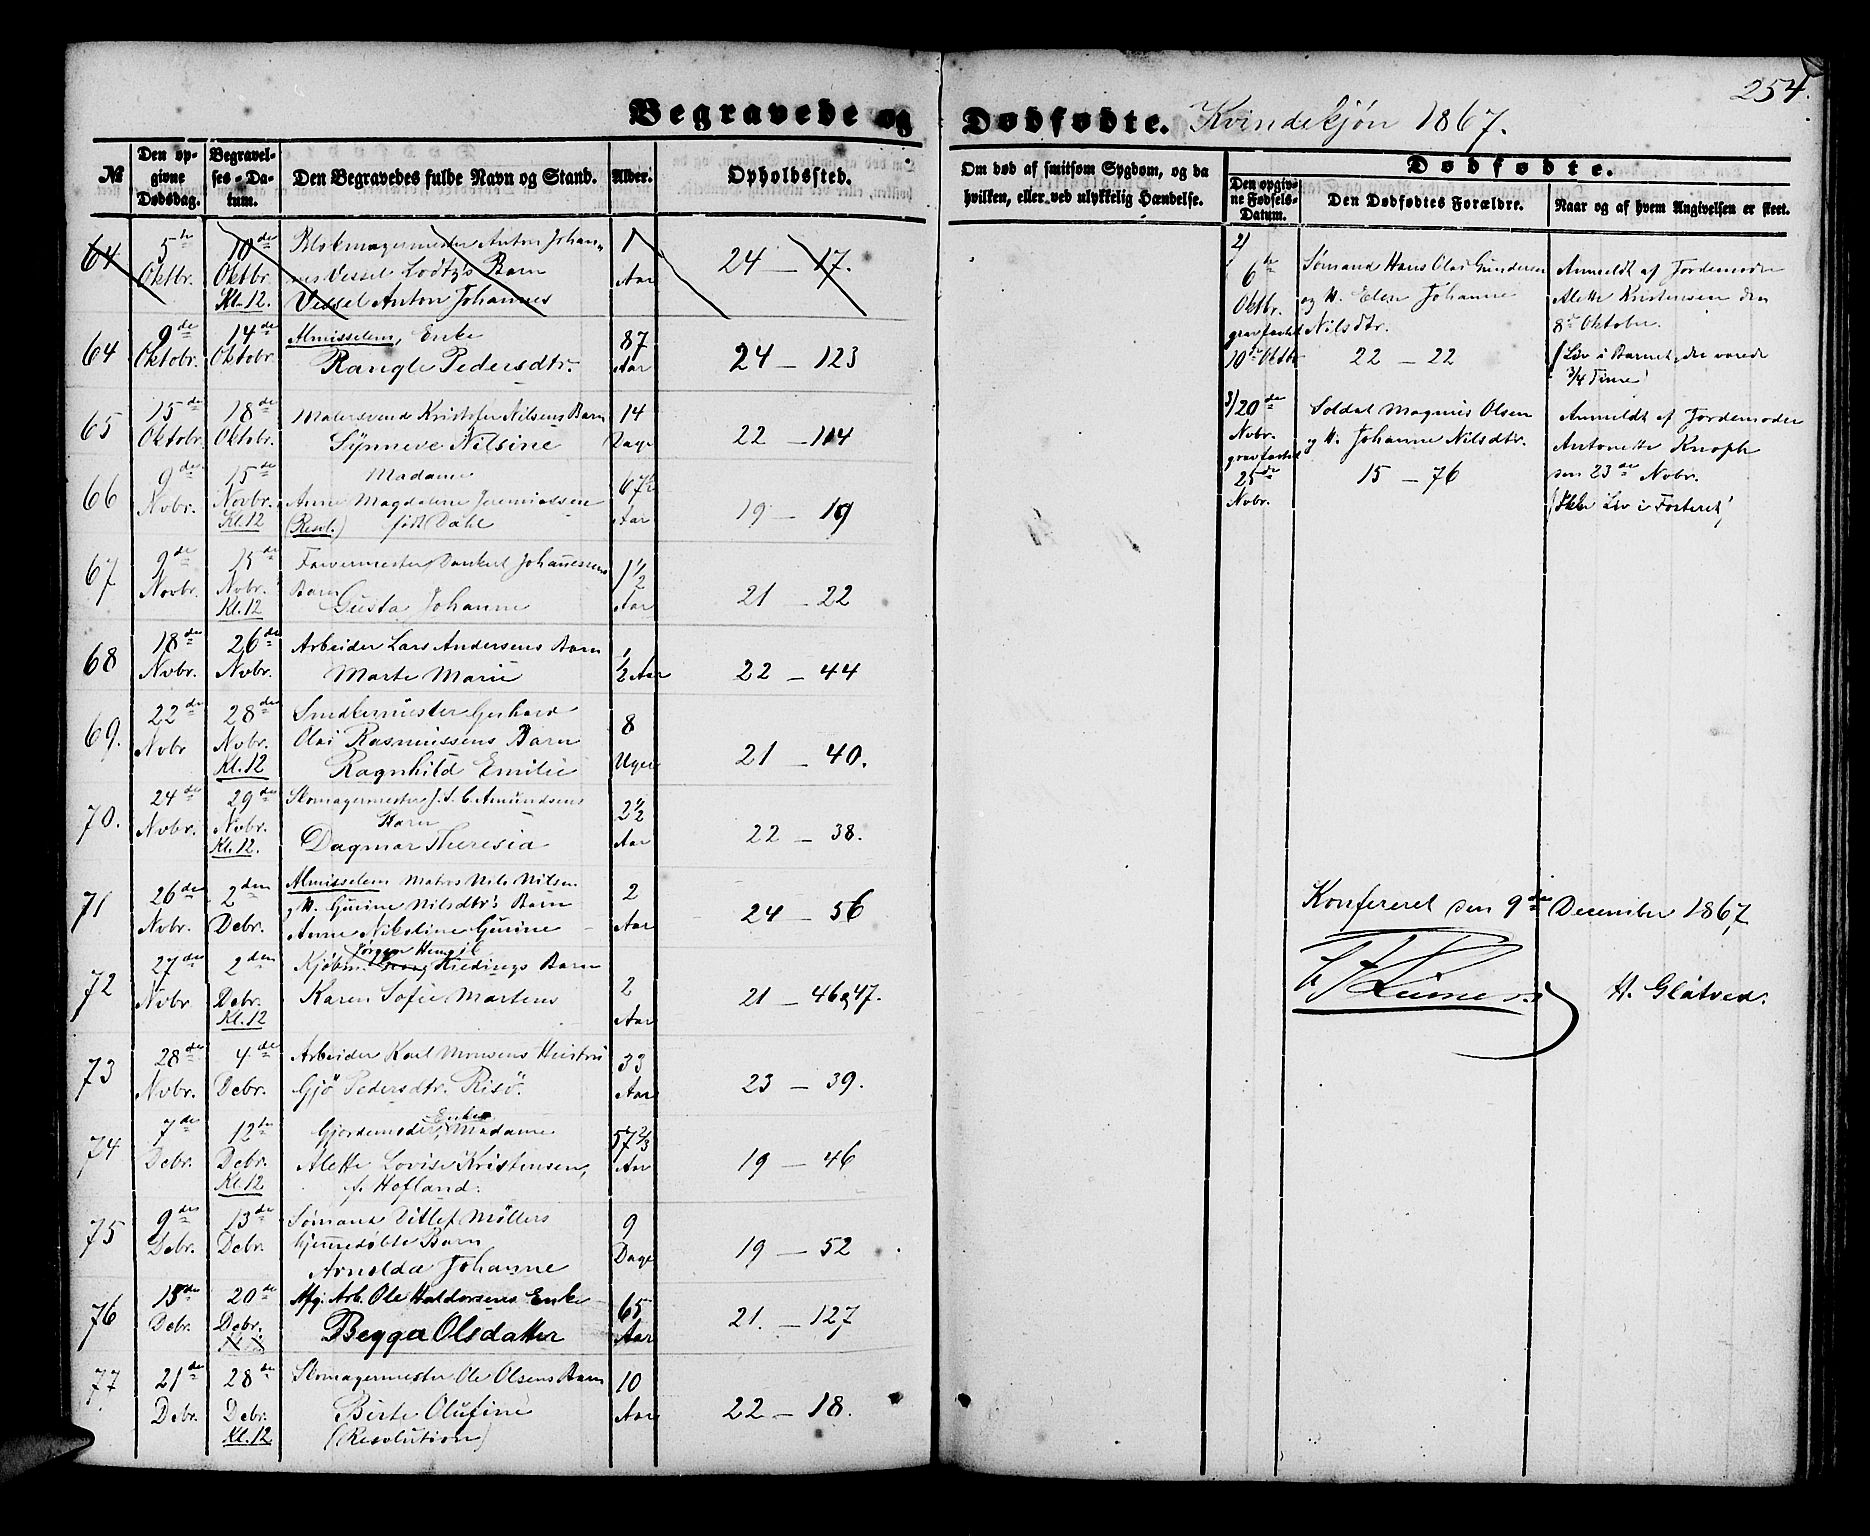 254.
Begravede og Dødfødte. Kvindekjön 1867.
№
Den opgivne Dødsdag.
Begravelses-Datum.
Den Begravedes fulde Navn og Stand.
Alder.
Opholdssted.
Om død af smitsom Sygdom, og da hvilken, eller ved ulykkelig Hændelse.
Dødfødte.
Den opgivne Fødsels-Datum.
Den Dødfødtes Forældre.
Naar og af hvem Angivelsen er skeet.
64 5te Oktbr. 10de Oktbr. Kl. 12. Blokmagermester Anton Johannes Vessel Lodtz's Barn 1 Aar 24 – 17.
Vessel Anton Johannes
64 9de Oktobr. 14de Oktobr. Almisselem, Enke 87 Aar 24 – 123
Rangle Pedersdtr.
65 15de Oktobr. 18de Oktobr. Malersvend Kristofer Nilsens Barn 14 Dage 22 – 114
Synneve Nilsine
66 9de Novbr. 15de Novbr. Kl. 12 Madame 67½ Aar 19 – 19
Anne Magdalene Jeremiassen
(Resol.) født Dahl
67 9de Novbr. 15de Novbr. Kl. 12 Farvermester Dankert Johannessens 1½ Aar 21 – 22
Barn
Gusta Johanne
68 18de Nvbr. 26de Nvbr. Arbeider Lars Andersens Barn ½ Aar 22 – 44
Marte Marie
69. 22de Nvbr 28de Nvbr. Kl. 12 Snedkermester Gerhard 8 Uger 21 – 40.
Olai Rasmussens Barn
Ragnhild Emilie
70. 24de Nvbr. 29de Nvbr. Kl. 12. Skomagermester J. S. C. Amundsens 2½ Aar 22 – 38.
Barn
Dagmar Theresia
71 26de Nvbr. 2den Debr. Almisselem Matros Nils Nilsen 2 Aar 24 – 56
og H. Gurine Nilsdtr's Barn
Anne Nikoline Gurine
72 27de Nvbr. 2den Debr. Kl. 12 Kjøbm. Jörgen Kiedings Barn 2 Aar 21 – 46 & 47.
Karen Sofie Martens
73 28de Nvbr. 4de Debr. Arbeider Karl Monsens Hustru 33 Aar 23 – 39.
Gjö Pedersdtr. Risö.
74 7de Debr. 12te Debr. Kl. 12 Gjordemoder, Enke Madame 57⅔ Aar 19 – 46
Alette Lovise Kristensen,
f. Hofland.
75 9des Debr. 13de Debr. Sömand Ditlef Möllers 9 Dage 19 – 52
hjemmedöbte Barn
Arnolda Johanne
76 15de Debr. 20de Debr. Afg. Arb. Ole Haldorsens Enke 65 Aar 21. – 127
Begga Olsdatter
77 21de Debr. 28de Debr. Kl. 12 Skomagermester Ole Olsens Barn 10 Aar 22 – 18.
Birte Olufine
(Resolution)
2) 6de Oktbr. gravfæstet 10de Oktbr
Sömand Hans Olai Gundersen
og H. Elen Johanne
Nilsdtr.
22 – 22
Anmeldt af Jordemoder
Alette Kristensen den
8de Oktober.
(Liv i Barnet, der varede
¾ Time)
3) 20de Nvbr. gravfæstet 25de Nvbr.
Soldat Magnus Olsen
og H. Johanne Nilsdtr.
15 – 76
Anmeldt af Jordemoder
Antonette Knoph
den 23de Nvbr.
(Ikke Liv i Fosteret)
Konfereret den 9de December 1867
H. Glatved.